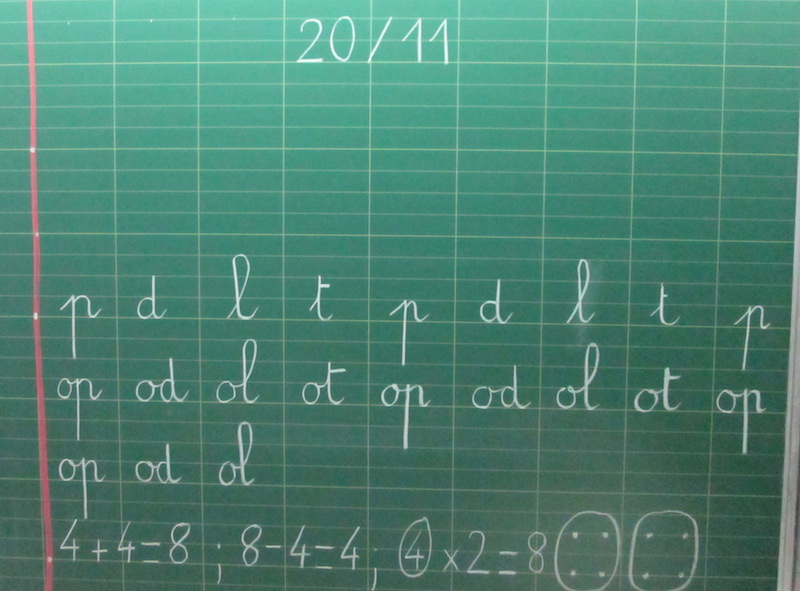 20/11
p d l t p d l t p
op od ol ot op od ol ot op
op od ol
4+4=8 ; 8-4=4 ; 4×2=8